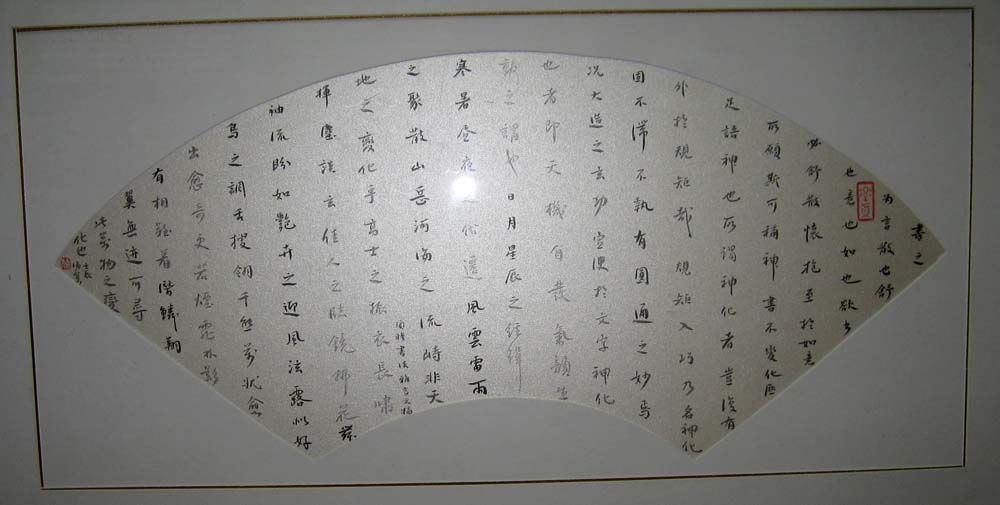 書之
为言散也舒
也意也如也欲书
必舒散懷抱至於如意
所願斯可稱神書不變化匪
足語神也所謂神化者豈復有
外於規矩哉規矩入巧乃名神化
固不滯不執有圓通之妙焉
况大造之玄功宣洩於文字神化
也者即天機自發氣韻生
動之謂也日月星辰之經緯
寒暑昼夜之代遷風雲雷雨
之聚散山岳河海之流峙非天
地之變化乎高士之振衣長嘯
揮麈談玄佳人之臨鏡拂花舞
袖流盼如艷卉之迎風泫露似好
鳥之調舌搜翎千態萬狀愈
出愈奇更若煙霏林影
有相難着潛鱗翔
翼無迹可尋
此萬物之變
化也
書法雅言